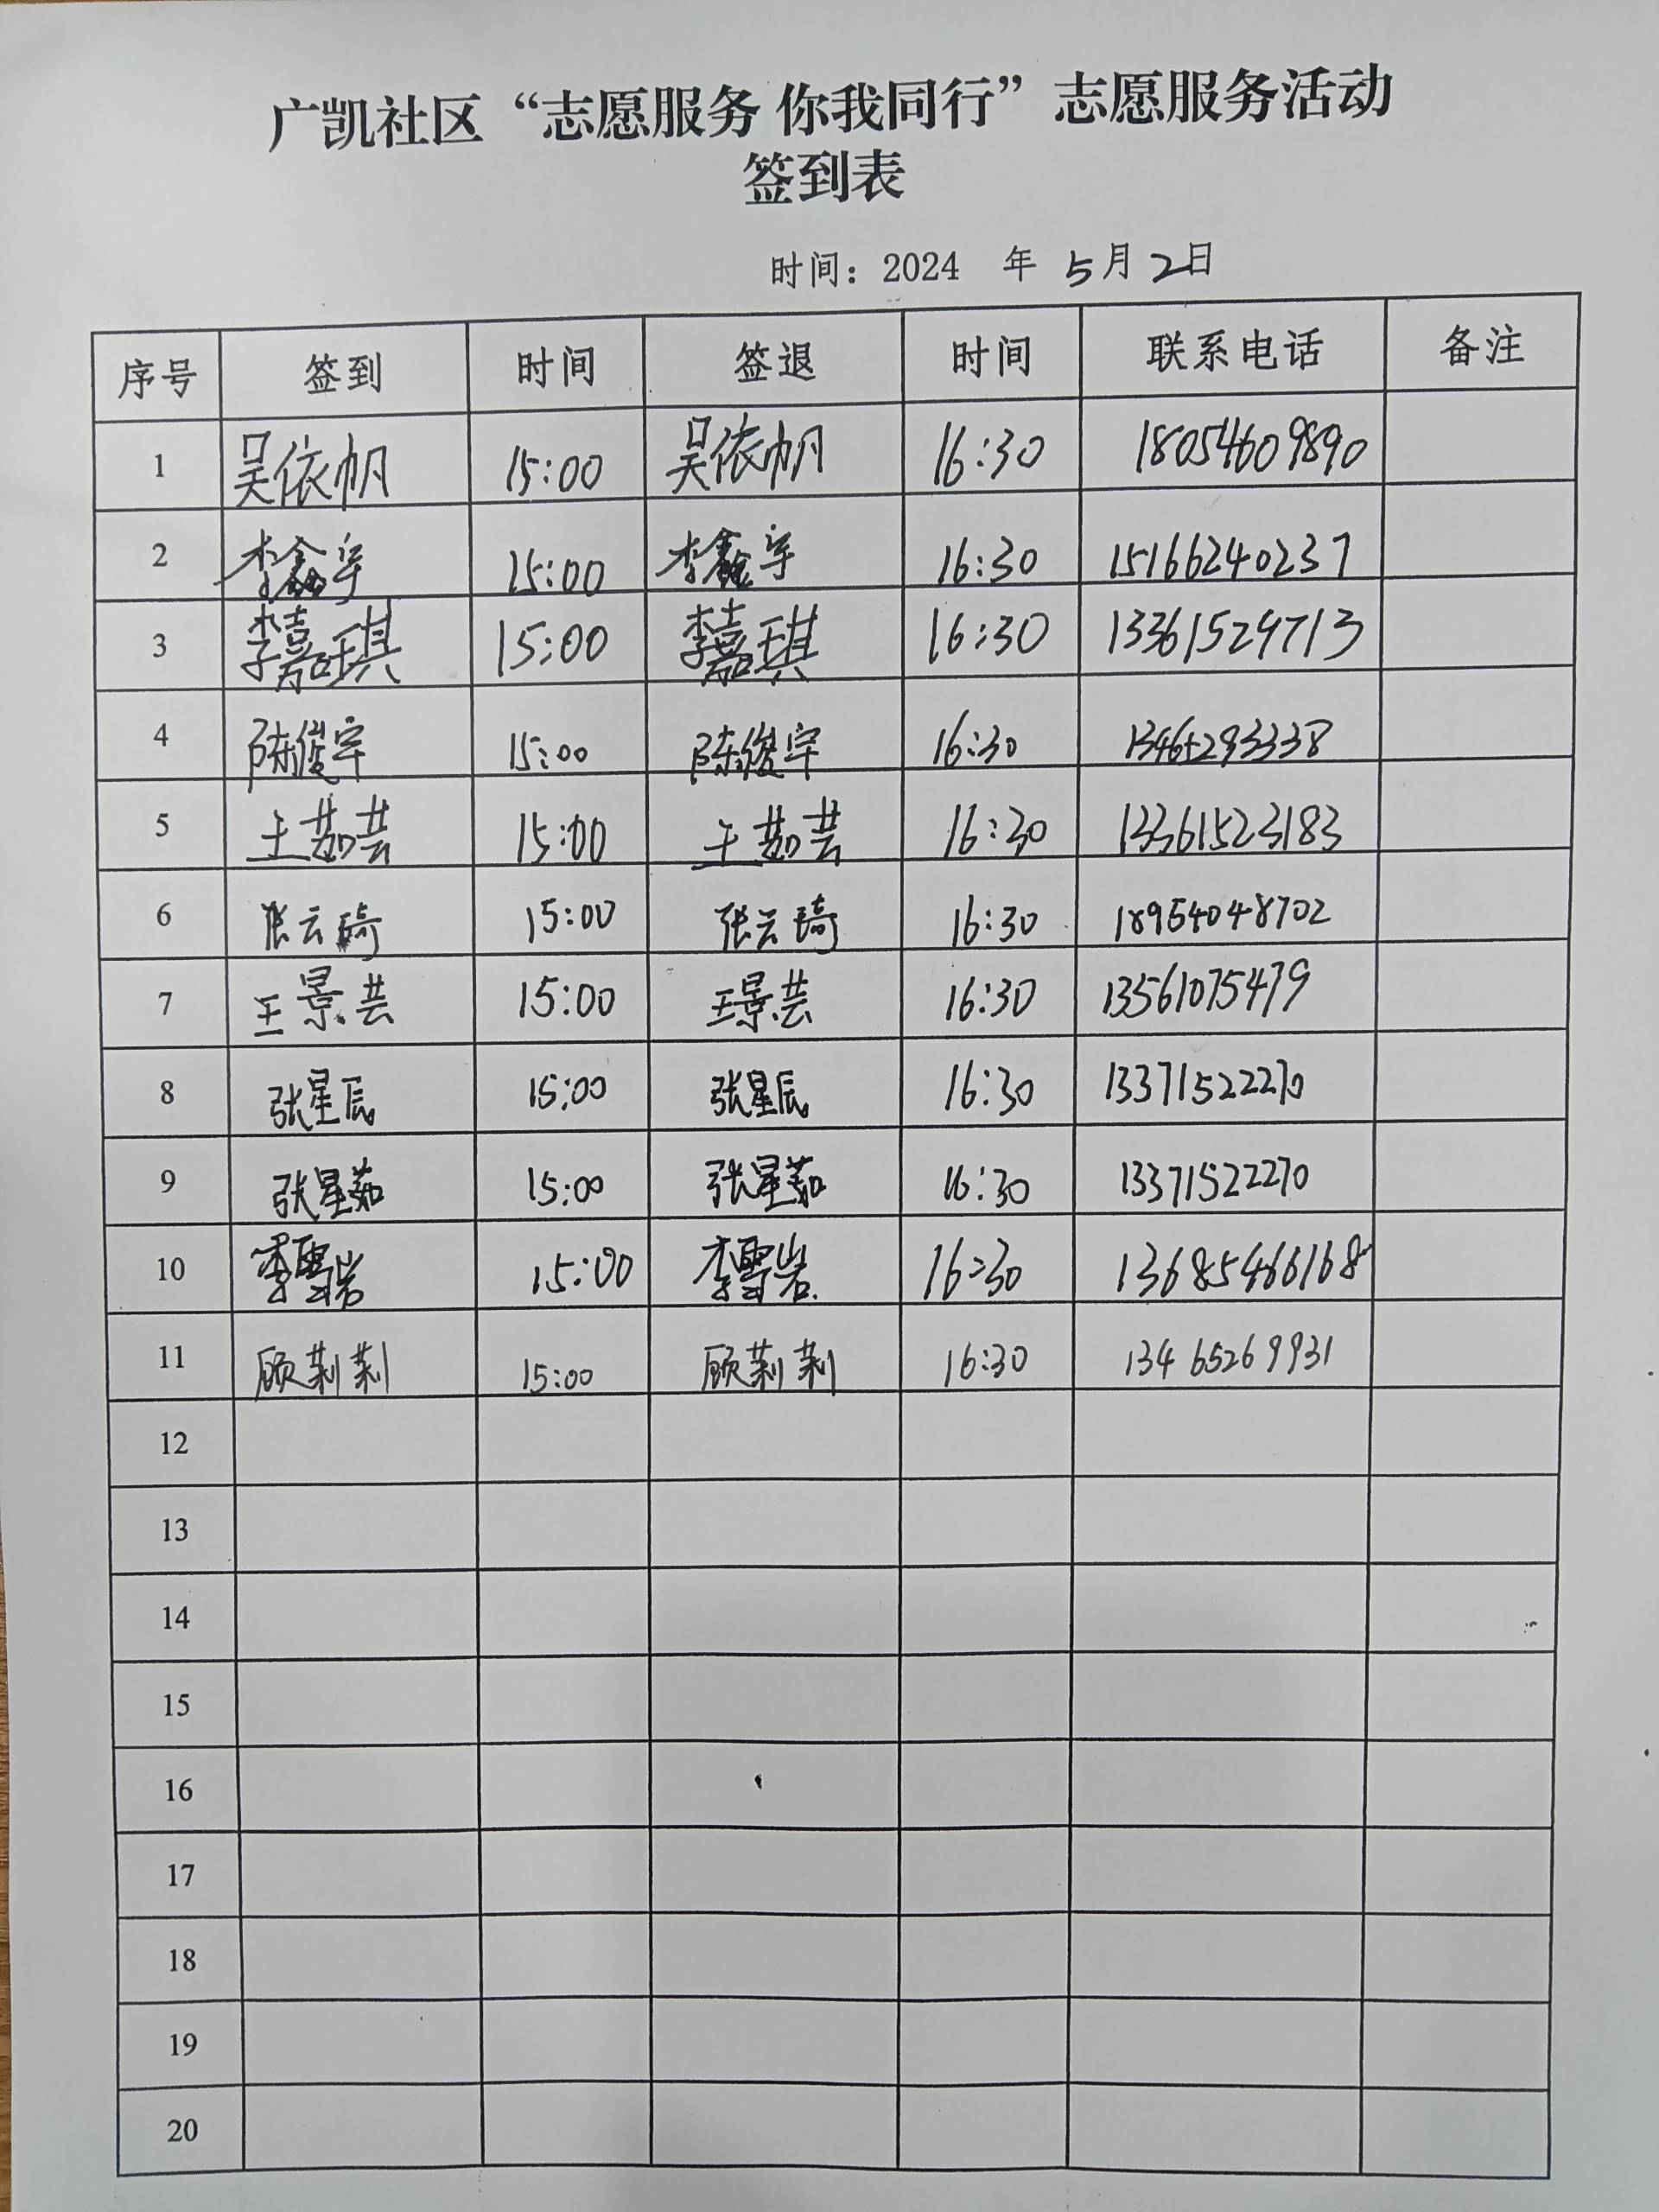 广凯社区“志愿服务 你我同行”志愿服务活动
签到表
时间：2024 年 5月2日
序号 签到 时间 签退 时间 联系电话 备注
1 吴依帆 15:00 吴依帆 16:30 18054609890
2 李鑫宇 15:00 李鑫宇 16:30 15166240237
3 李嘉琪 15:00 李嘉琪 16:30 13361529713
4 陈俊宇 15:00 陈俊宇 16:30
5 王茹芸 15:00 王茹芸 16:30 13361523183
6 张云琦 15:00 张云琦 16:30 18954048702
7 王景芸 15:00 王景芸 16:30 13561075479
8 张星辰 15:00 张星辰 16:30 13371522270
9 张星茹 15:00 张星茹 16:30 13371522270
10 李雪岩 15:00 李雪岩 16:30 13685466168
11 顾莉莉 15:00 顾莉莉 16:30 13465269931
12
13
14
15
16
17
18
19
20